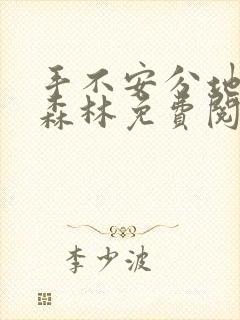 手不安分地
森林免费阅
李少波